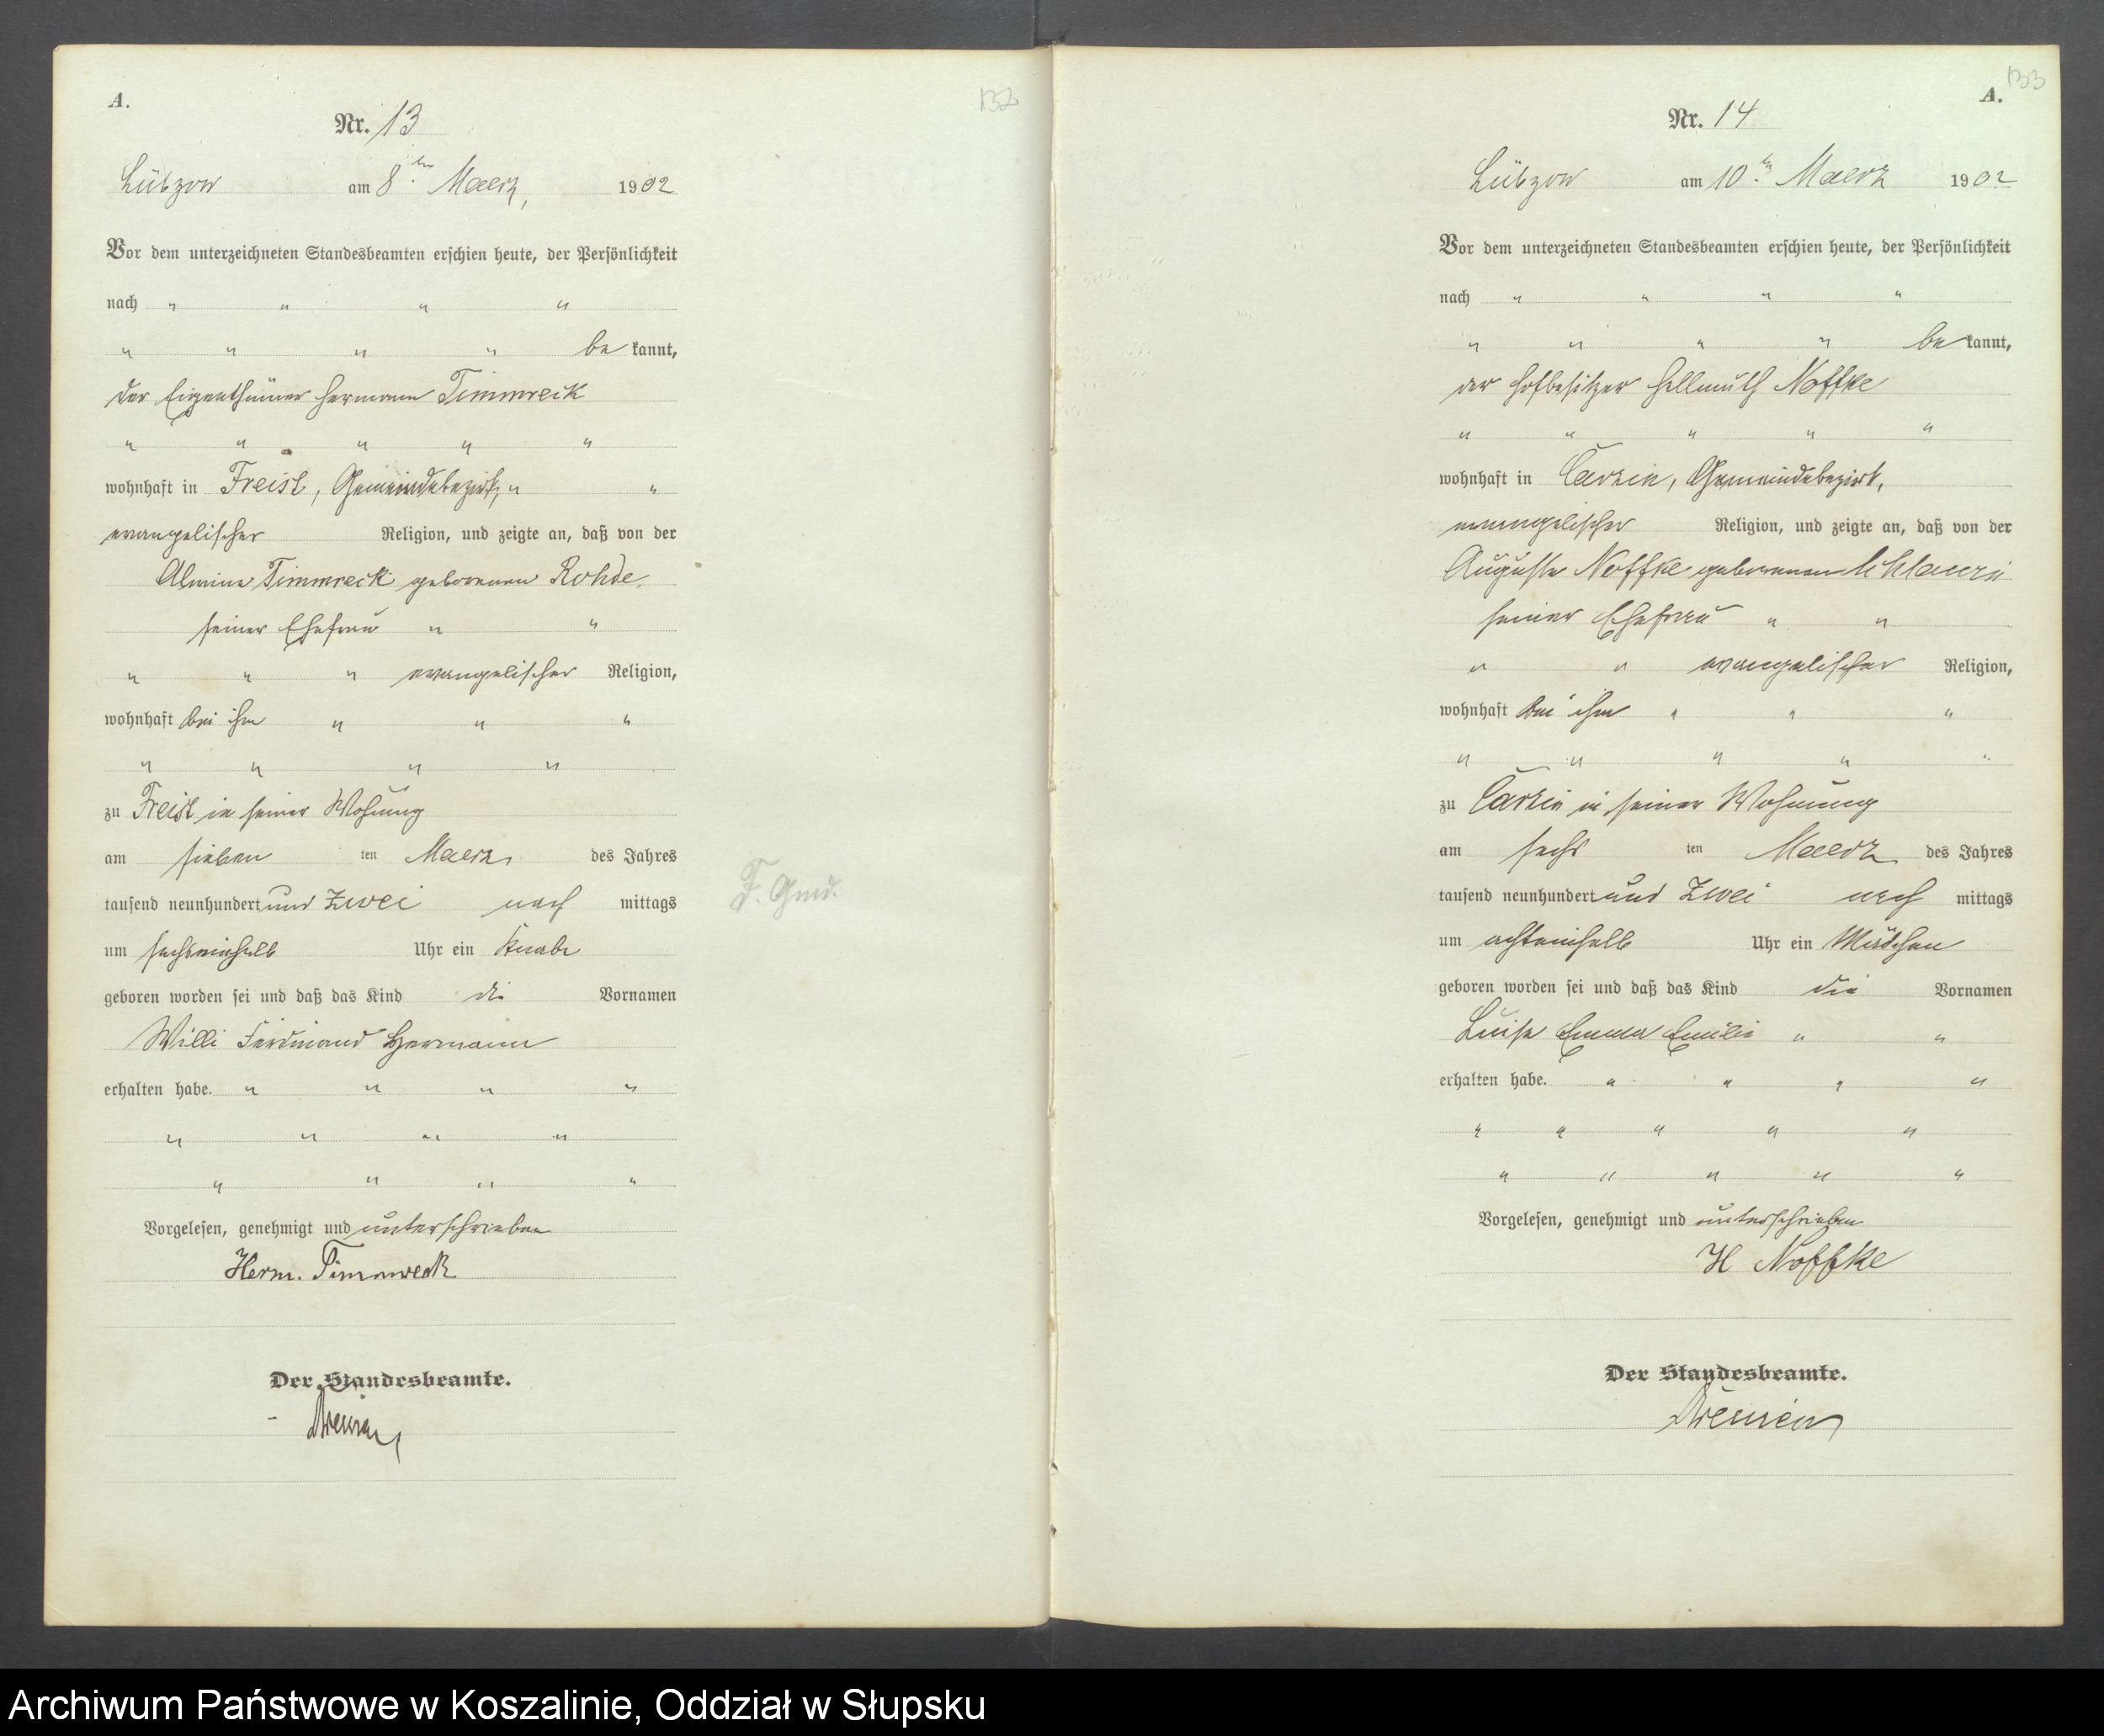 A.
132
Nr. 13
Lübzow am 8ten Maerz, 1902
Vor dem unterzeichneten Standesbeamten erschien heute, der Persönlichkeit
nach " " " "
" " " " be kannt,
der Eigenthümer Hermann Timmreck
" " " " "
wohnhaft in Freist, Gemeindebezirk, " "
evangelischer Religion, und zeigte an, daß von der
Alwine Timmreck geborenen Rohde,
seiner Ehefrau " "
" " " evangelischer Religion,
wohnhaft bei ihm " " "
" " " "
zu Freist in seiner Wohnung
am sieben ten Maerz, des Jahres
tausend neunhundert und zwei nach mittags
um sechseinhalb Uhr ein Knabe
geboren worden sei und daß das Kind die Vornamen
Willi Ferdinand Hermann
erhalten habe. " " " "
" " " "
" " " "
Vorgelesen, genehmigt und unterschrieben
Herm. Timmreck
Der Standesbeamte.
F. Gmd.
133
A.
Nr. 14
Lübzow am 10ten Maerz 1902
Vor dem unterzeichneten Standesbeamten erschien heute, der Persönlichkeit
nach " " " "
" " " " be kannt,
der Hofbesitzer Hellmuth Noffke
" " " " "
wohnhaft in Carzin, Gemeindebezirk,
evangelischer Religion, und zeigte an, daß von der
Auguste Noffke geborenen
seiner Ehefrau " "
" " evangelischer Religion,
wohnhaft bei ihm " " "
" " " " "
zu Carzin in seiner Wohnung
am sechs ten Maerz des Jahres
tausend neunhundert und zwei nach mittags
um achteinhalb Uhr ein Mädchen
geboren worden sei und daß das Kind die Vornamen
Luise Emma Emilie " "
erhalten habe. " " " "
" " " " "
" " " " "
Vorgelesen, genehmigt und unterschrieben
H Noffke
Der Standesbeamte.
Archiwum Państwowe w Koszalinie, Oddział w Słupsku